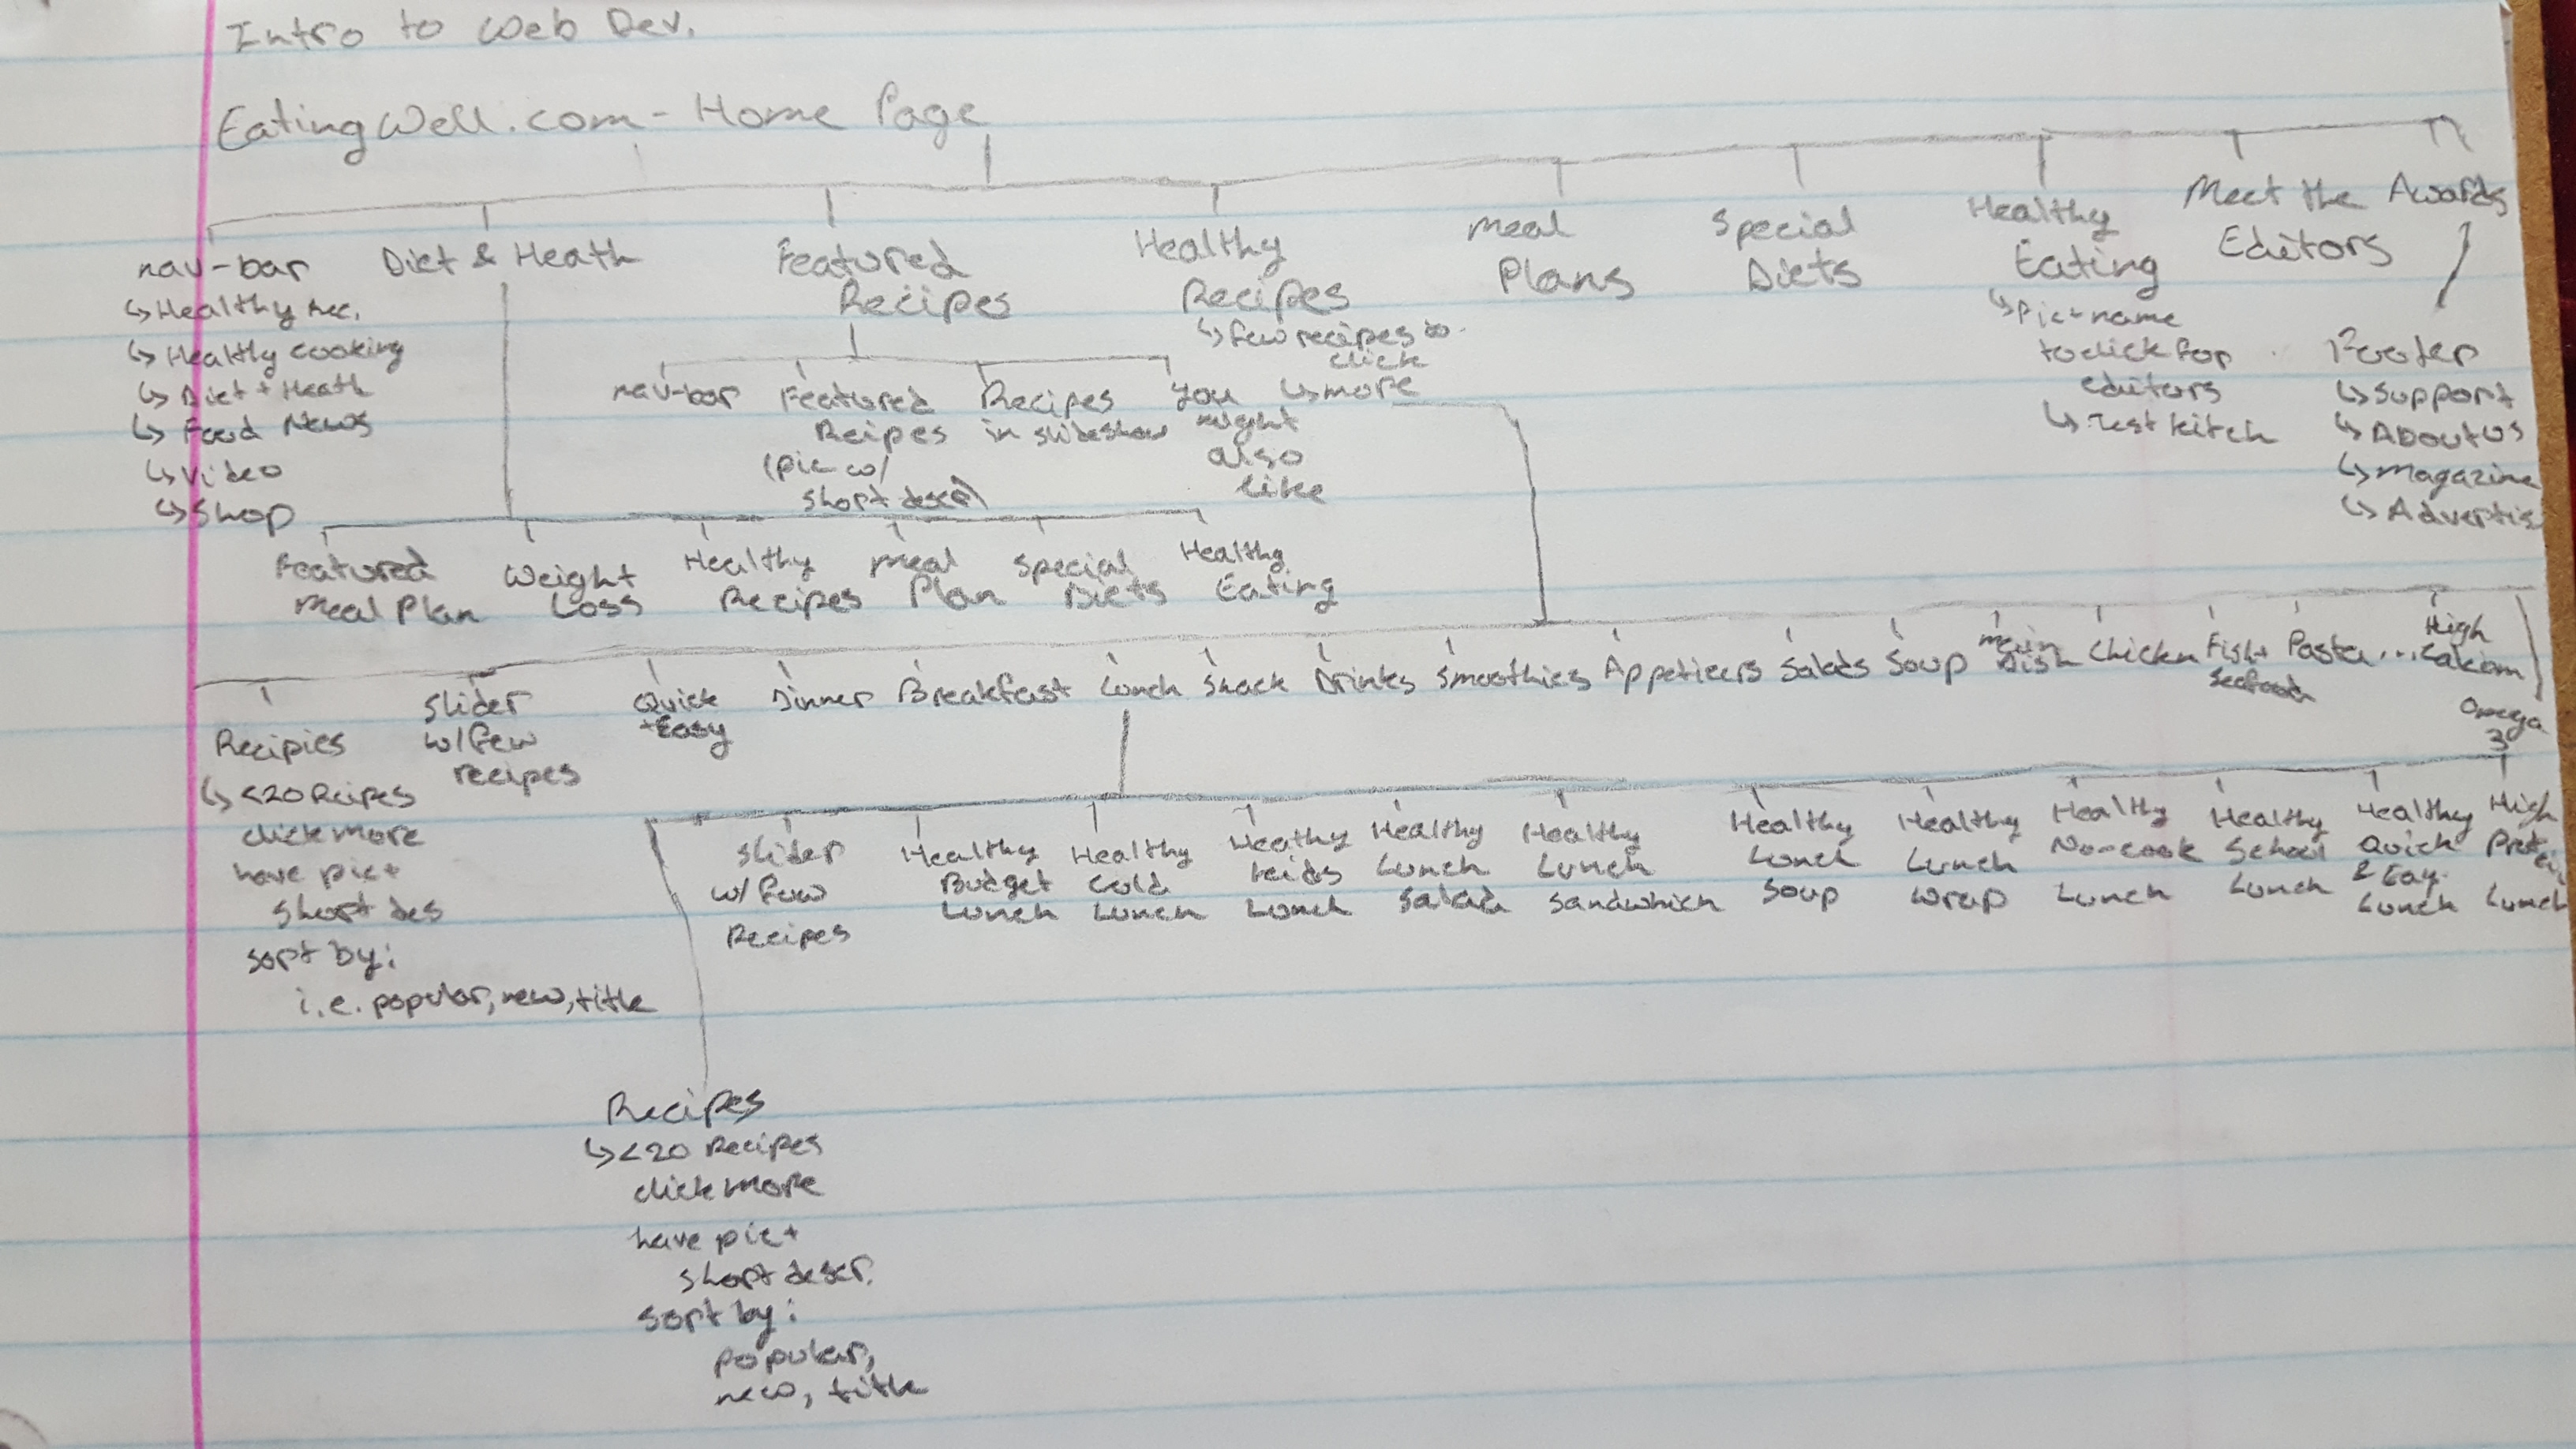 Intro to Web Dev.
EatingWell.com - Home Page
nav-bar
↳ Healthy Rec.
↳ Healthy cooking
↳ Diet + Heath
↳ Food News
↳ Video
↳ Shop
Diet & Heath
Featured
Recipes
Healthy
Recipes
↳ few recipes to
click
↳ more
Meal
Plans
Special
Diets
Healthy
Eating
↳ Pic + name
to click for
editors
↳ Test Kitch
Meet the
Editors
Awards
Footer
↳ Support
↳ About US
↳ Magazine
↳ Advertis
nav-bar
Featured
Reipes
(pic w/
short descr)
Recipes
in slideshow
You
might
also
like
Featured
Meal Plan
Weight
Loss
Healthy
Recipes
Meal
Plan
Special
Diets
Healthy
Eating
Recipies
↳ <20 Reipes
click more
have pic +
short des
sort by:
i.e. popular, new, title
Slider
w/few
recipes
Quick
+Easy
Dinner
Breakfast
Lunch
Snack
Drinks
Smoothies
Appetieers
Salads
Soup
Main
Dish
Chicken
Fish +
Seafood
Pasta ...
High
Calcium
Omega
3
Slider
w/few
Recipes
Healthy
Budget
Lunch
Healthy
Cold
Lunch
Heathy
Kids
Lunch
Healthy
Lunch
Salad
Healthy
Lunch
Sandwhich
Healthy
Lunch
Soup
Healthy
Lunch
Wrap
Healthy
No-cook
Lunch
Healthy
School
Lunch
Healthy
Quick
& Eay.
Lunch
High
Protein
Lunch
Recipes
↳ <20 Recipes
click more
have pic +
short descr.
sort by:
popular,
new, title